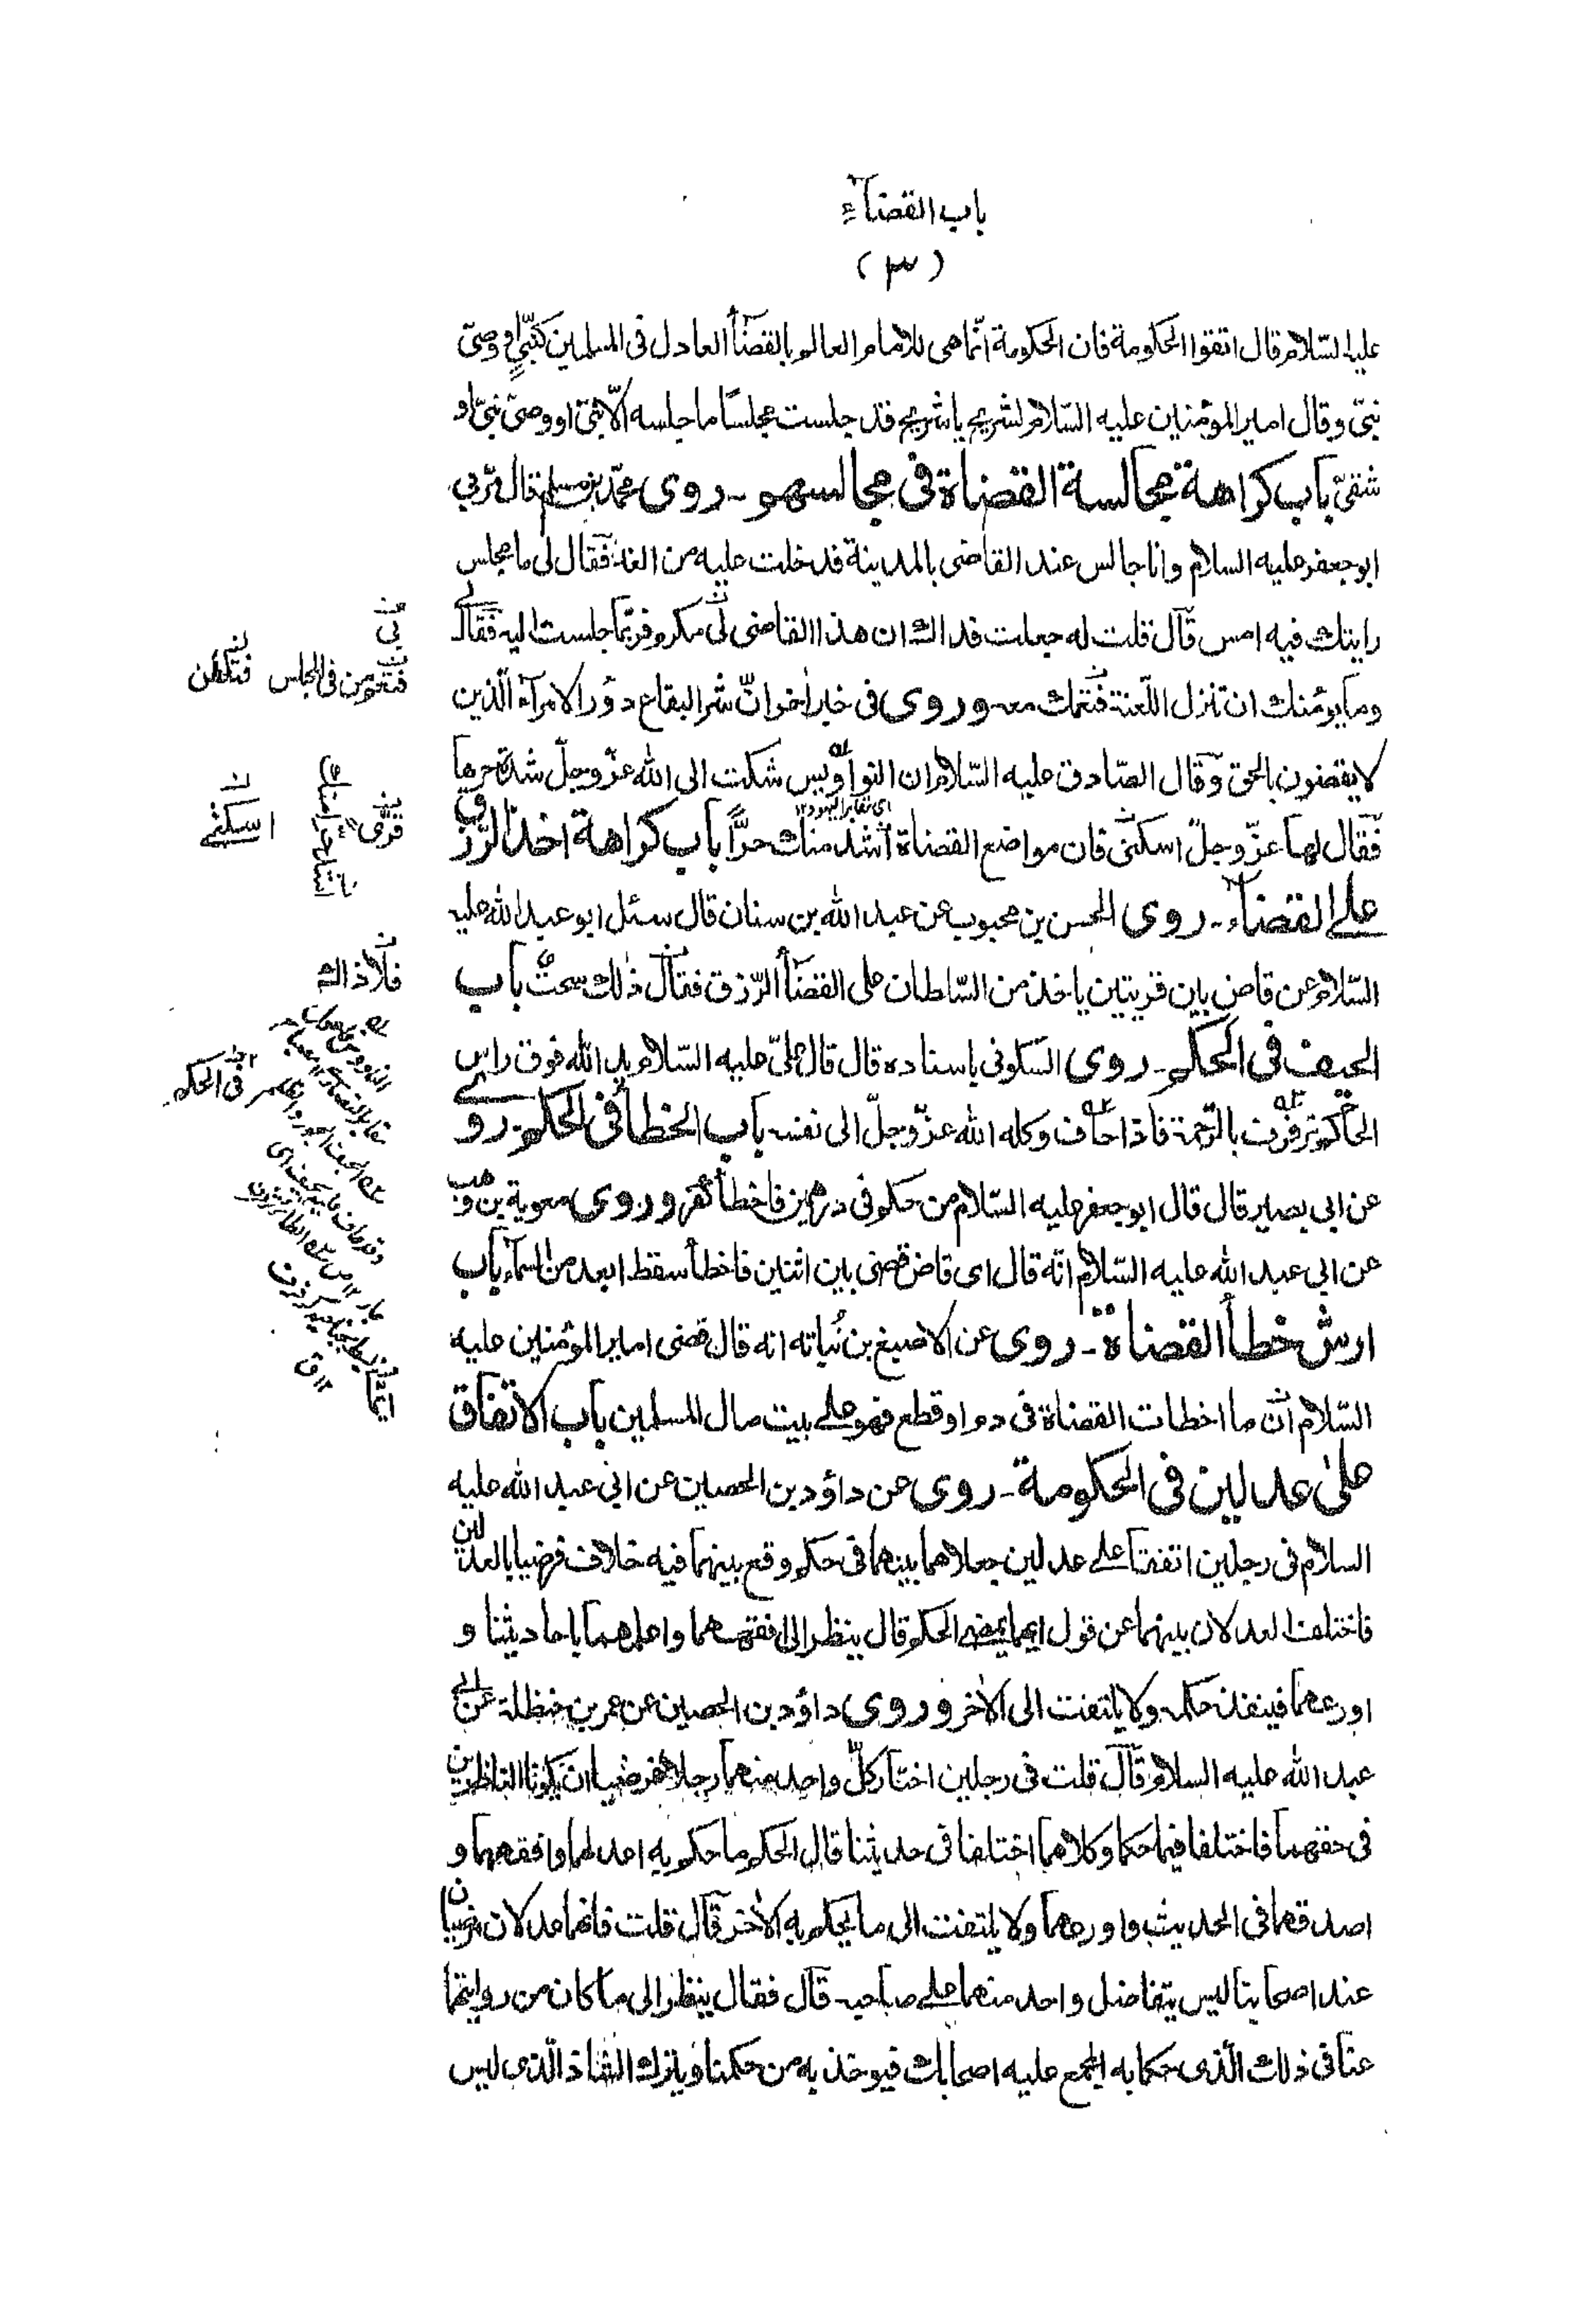 باب القضآء
(٣)
عليه السّلام قال اتقوا الحكومة فان الحكومة انّما هى للامام العالم بالقضآء العادل فى المسلمين كنبىّ او وصىّ
نبىّ وقال امير المؤمنين عليه السّلام لشريح يا شريح قد جلست مجلسًا ما جلسه الّا نبىّ او وصىّ نبىّ او
شقىّ باب كراهة مجالسة القضاة فى مجالسهم ـ روى محمّد بن مسلم قال مرّ بي
ابو جعفر عليه السلام وانا جالس عند القاضى بالمدينة فدخلت عليه من الغد فقال لى ما مجلس
رايتك فيه امس قال قلت له جعلت فداك ان هذا القاضى لى مكرم فربّما جلست اليه فقال لى
وما يؤمنك ان تنزل اللّعنة فتعمّك معه وروى فى خبر اٰخر انّ شر البقاع دؤر الامرآء الّذين
لا يقضون بالحق وقال الصّادق عليه السّلام ان النواويس شكت الى الله عزّ وجلّ شدّة حرها
اى مقابر اليهود ١٢
فقال لها عزّ وجلّ اسكنى فان مواضع القضاة اشد منك حرًّا باب كراهة اخذ الرّزق
على القضآء ـ روى الحسن بن محبوب عن عبد الله بن سنان قال سئل ابو عبد الله عليه
السّلام عن قاض بين قريتين ياخذ من السّلطان على القضآء الرّزق فقال ذٰلك سحتٌ باب
الحيف فى الحكم ـ روى السّكونى باسناده قال قال علىّ عليه السّلام يد الله فوق راس
الحاكم ترفرف بالرّحمة فاذا حاف وكله الله عزّ وجلّ الى نفسه باب الخطأ فى الحكم ـ روى
عن ابى بصير قال قال ابو جعفر عليه السّلام من حكم فى درهمين فاخطأ كفر وروى معوية بن وهب
عن ابى عبد الله عليه السّلام انّه قال اى قاض قضى بين اثنين فاخطأ سقط ابعد من السمآء باب
ارش خطأ القضاة ـ روى عن الاصبغ بن نُباته انه قال قضى امير المؤمنين عليه
السّلام انّ ما اخطات القضاة فى دم او قطع فهو على بيت مال المسلمين باب الاتفاق
علىٰ عدلين فى الحكومة ـ روى عن داؤد بن الحصين عن ابى عبد الله عليه
السلام فى رجلين اتفقا على عدلين جعلاهما بينهما فى حكم وقع بينهما فيه خلاف فرضيا بالعدلين
فاختلف العدلان بينهما عن قول ايهما يمضى الحكم قال ينظر الى افقههما واعلمهما باحاديثنا و
اورعهما فينفذ حكمه ولا يلتفت الى الاٰخر وروى داؤد بن الحصين عن عمر بن حنظلة عن ابى
عبد الله عليه السلام قال قلت فى رجلين اختار كلّ واحد منهما رجلا فرضيا ان يكونا الناظرين
فى حقهما فاختلفا فيما حكما وكلاهما اختلفا فى حديثنا قال الحكم ما حكم به اعدلهما وافقههما و
اصدقهما فى الحديث واورعهما ولا يلتفت الى ما يحكم به الاٰخر قال قلت فانهما عدلان مرضيان
عند اصحابنا ليس يتفاضل واحد منهما على صاحبه قال فقال ينظر الى ما كان من روايتهما
عنا فى ذلك الّذى حكما به المجمع عليه اصحابك فيوخذ به من حكمنا ويترك الشاذ الّذى ليس
بى
فتقومن فى المجلس
اسكنى
اشد حرّا منك
فى الحكم